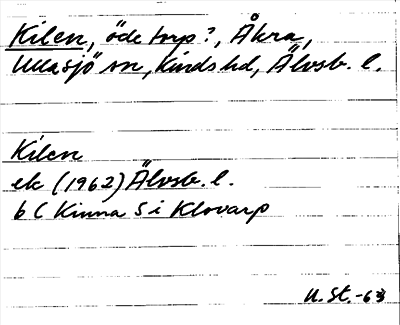 Kilen, öde torp?, Åkra,
Ullasjö sn, Kinds hd, Älvsb. l.
Kilen
ek (1962) Älvsb. l.
6 C Kinna S i Klovarp
U. St. -63